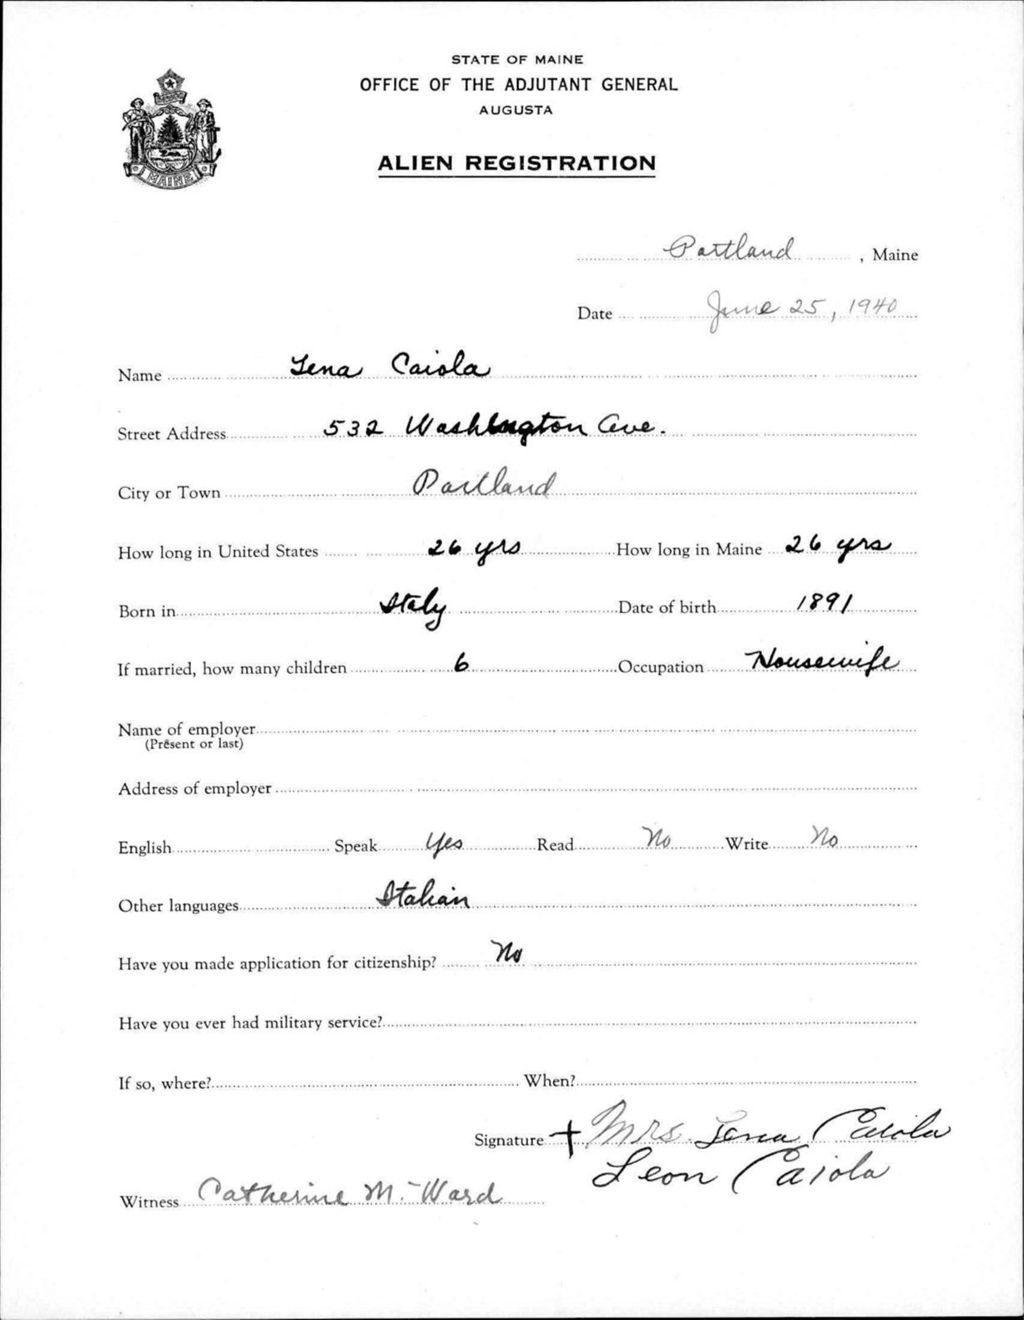 STATE OF MAINE
OFFICE OF THE ADJUTANT GENERAL
AUGUSTA
ALIEN REGISTRATION
MAINE
Portland, Maine
Date June 25, 1940
Name Lena Caiola
Street Address 532 Washington Ave.
City or Town Portland
How long in United States 26 yrs How long in Maine 26 yrs
Born in Italy Date of birth 1891
If married, how many children 6 Occupation Housewife
Name of employer
(Present or last)
Address of employer
English Speak Yes Read No Write No
Other languages Italian
Have you made application for citizenship? No
Have you ever had military service?
If so, where? When?
Signature + Mrs. Lena Caiola
Leon Caiola
Witness Catherine M. Ward